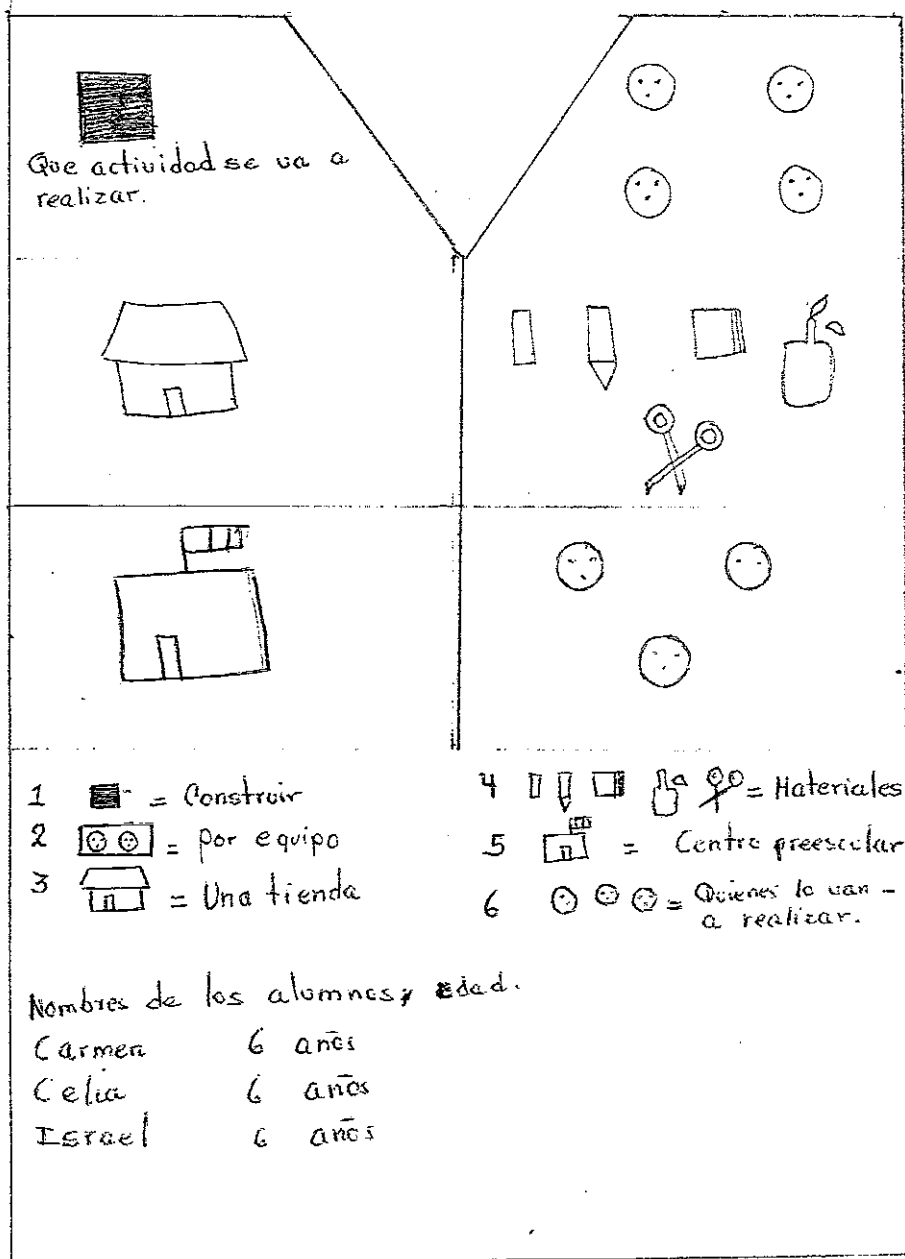 Que actividad se va a
realizar.
1 = Construir
2 = por equipo
3 = Una tienda
4 = Materiales
5 = Centro preescolar
6 = Quienes lo van -
a realizar.
Nombres de los alumnos, edad.
Carmen 6 años
Celia 6 años
Israel 6 años